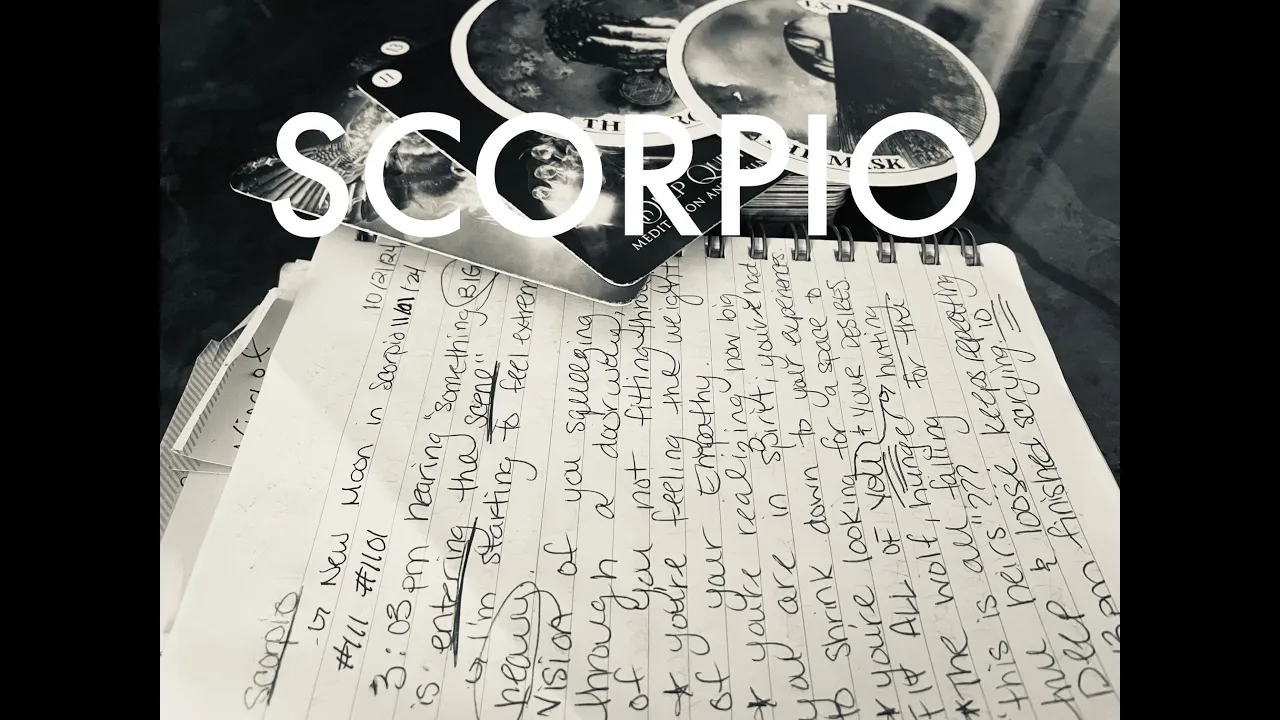 LXI
13
11
THE MASK
DEEP QU
MEDITATION AN
SCORPIO
10/21/24
Scorpio
↳ New Moon in Scorpio 11/01/24
#111 #1101
3:03 pm hearing "something BIG
is entering the scene"
↳ I'm starting to feel extrem
heavy.
Vision of you squeezing
through a doorway,
of you not fitting thro
* you're feeling the weight
of your empathy.
* you're realizing how big
you are in spirit, you've had
to shrink down to your experiences.
* you're looking for a space to
Fit ALL of you + your desires.
* The wolf, hunger → hunting
for the
"this is all"??? falling
keeps repeating
heirs & loose
finished saying.
Deep